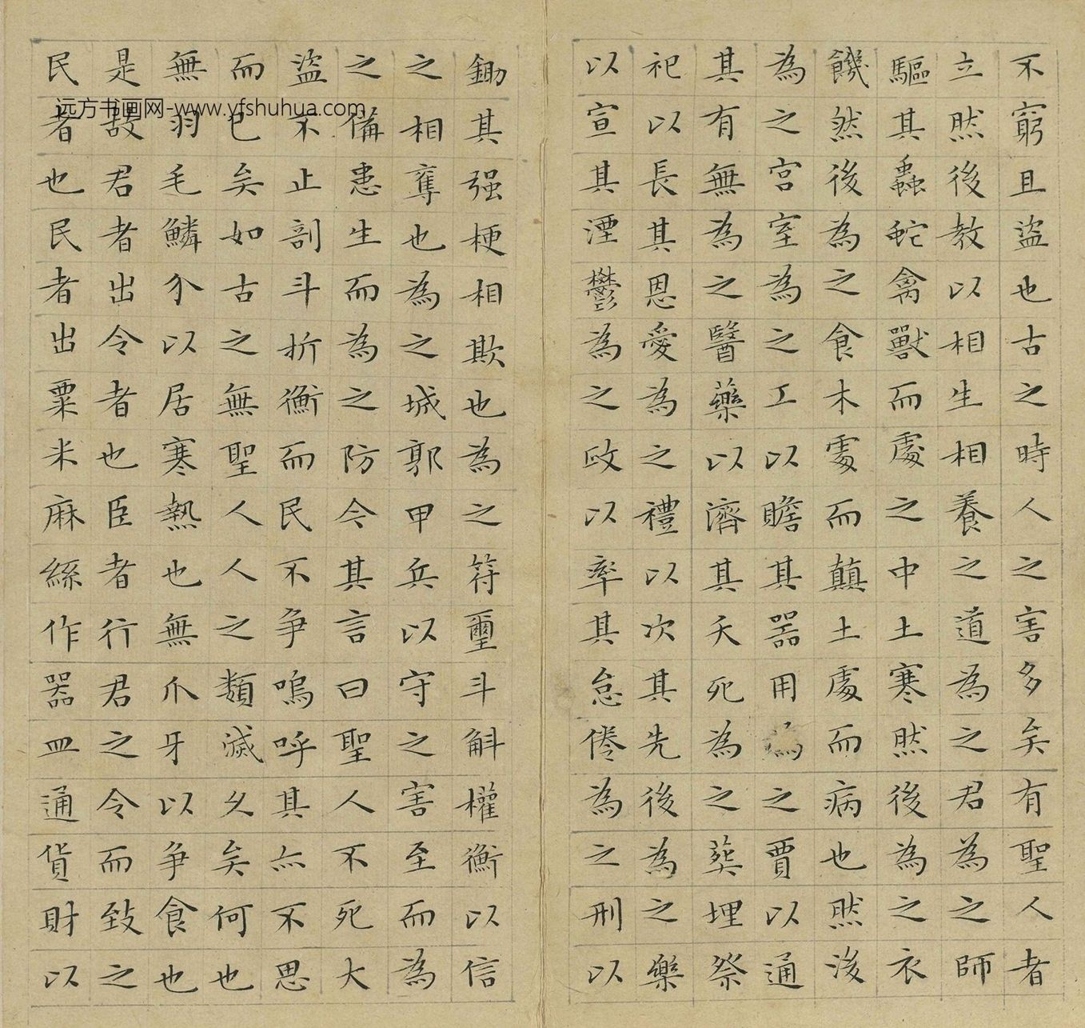 不窮且盜也古之時人之害多矣有聖人者
立然後教以相生相養之道為之君為之師
驅其蟲蛇禽獸而處之中土寒然後為之衣
饑然後為之食木處而顛土處而病也然後
為之宮室為之工以贍其器用為之賈以通
其有無為之醫藥以濟其夭死為之葬埋祭
祀以長其恩愛為之禮以次其先後為之樂
以宣其湮鬱為之政以率其怠倦為之刑以
鋤其强梗相欺也為之符璽斗斛權衡以信
之相奪也為之城郭甲兵以守之害至而為
之備患生而為之防今其言曰聖人不死大
盜不止剖斗折衡而民不争嗚呼其亦不思
而已矣如古之無聖人人之類滅久矣何也
無羽毛鱗介以居寒熱也無爪牙以争食也
是故君者出令者也臣者行君之令而致之
民者也民者出粟米麻絲作器皿通貨財以
远方书画网-www.yfshuhua.com